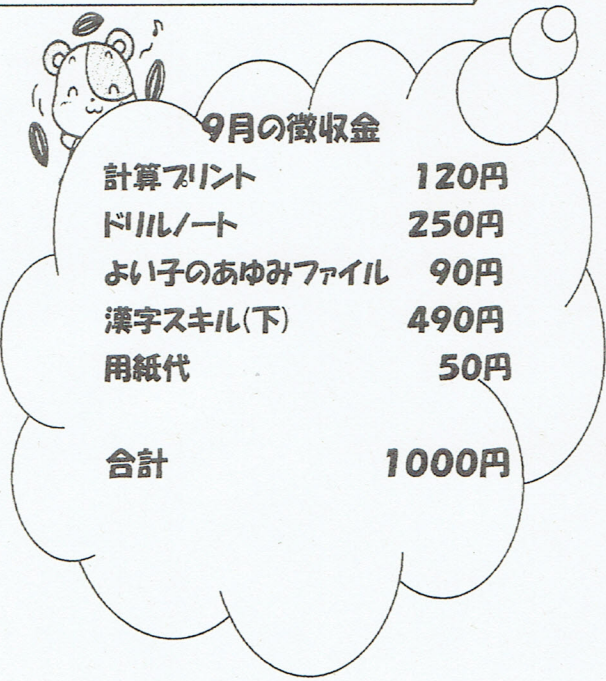 9月の徴収金
計算プリント 120円
ドリルノート 250円
よい子のあゆみファイル 90円
漢字スキル(下) 490円
用紙代 50円
合計 1000円